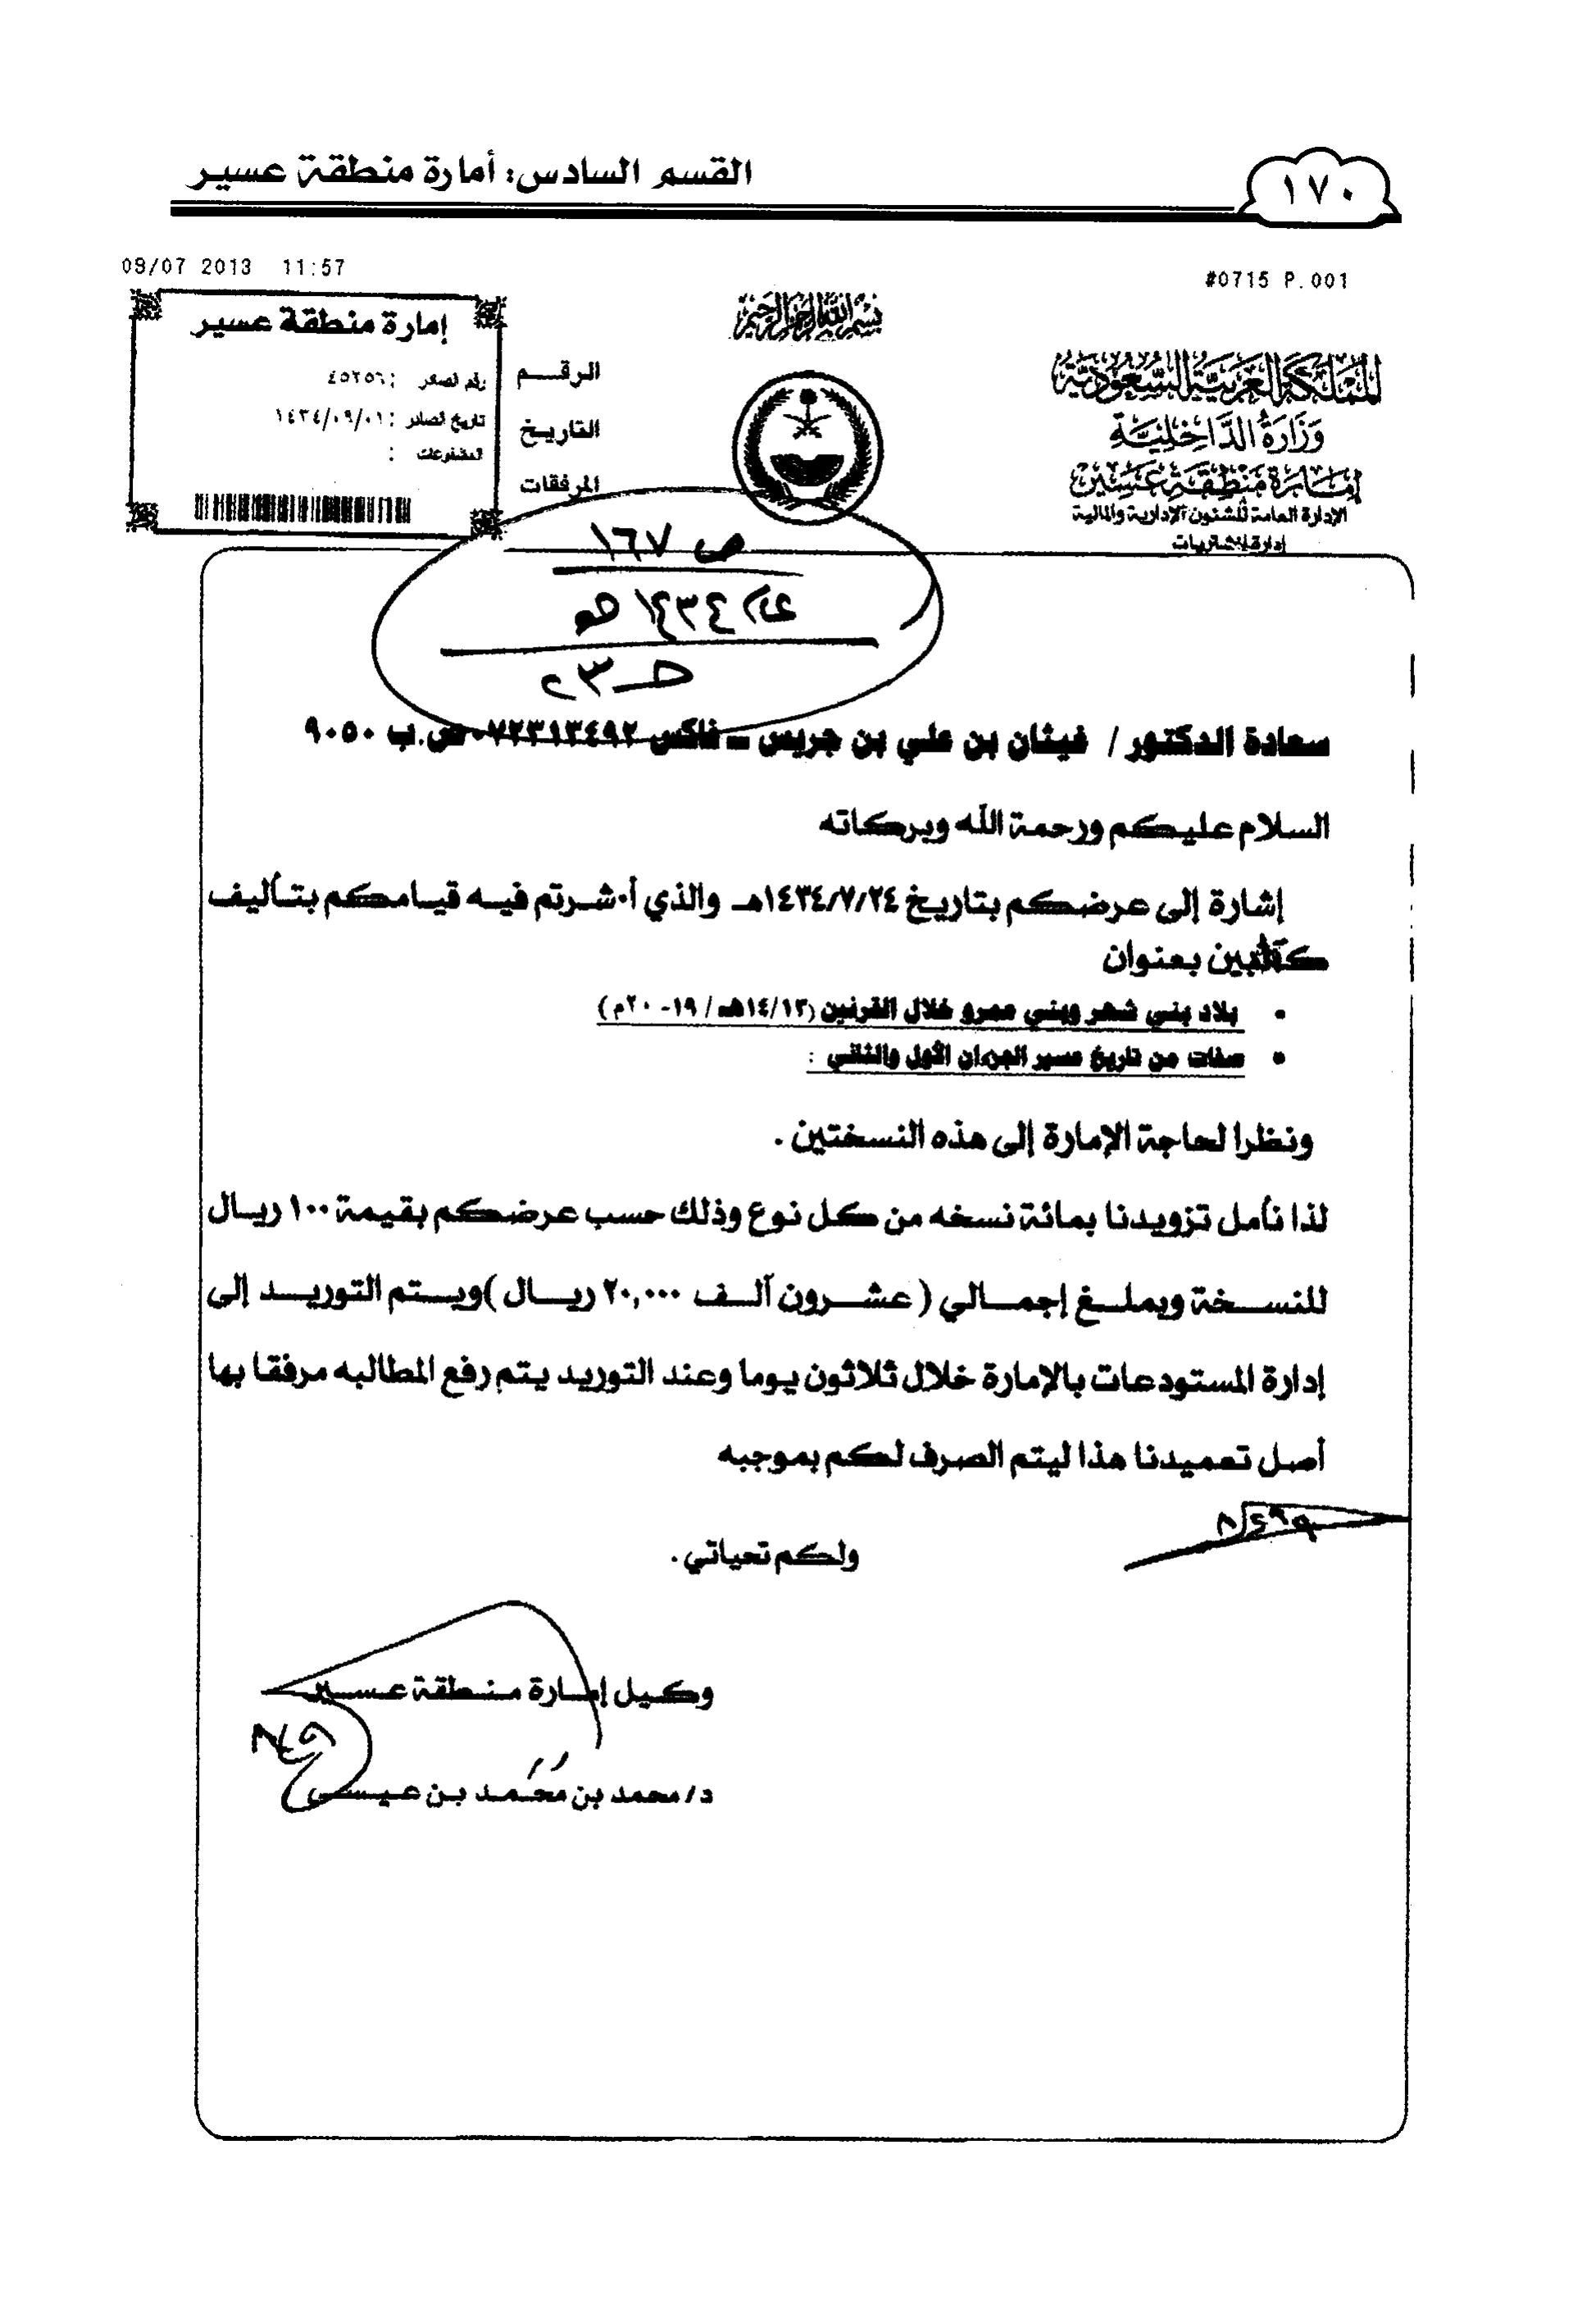 ١٧٠
القسم السادس: أمارة منطقة عسير
09/07 2013 11:57
#0715 P.001
بسم الله الرحمن الرحيم
المملكة العربية السعودية
وزارة الداخلية
إمارة منطقة عسير
الإدارة العامة للشئون الإدارية والمالية
إدارة المشتريات
الرقم
التاريخ
المرفقات
إمارة منطقة عسير
رقم الصادر : ٤٥٢٥٦
تاريخ الصادر : ١٤٣٤/٠٩/٠١
المشفوعات :
ص ١٦٧
عام ١٤٣٤ هـ
سعادة الدكتور / غيثان بن علي بن جريس – فاكس ٠٧٢٣١٣٤٩٢ ص.ب ٩٠٥٠
السلام عليكم ورحمة الله وبركاته
إشارة إلى عرضكم بتاريخ ١٤٣٤/٧/٢٤هـ والذي أ٠شرتم فيه قيامكم بتأليف
كتابين بعنوان
• بلاد بني شهر وبني عمرو خلال القرنين (١٤/١٣هـ / ١٩-٢٠م)
• صفات من تاريخ عسير الجزءان الأول والثاني :
ونظرا لحاجة الإمارة إلى هذه النسختين .
لذا نأمل تزويدنا بمائة نسخه من كل نوع وذلك حسب عرضكم بقيمة ١٠٠ ريال
للنسخة وبملغ إجمالي ( عشرون آلف ٢٠,٠٠٠ ريال )ويتم التوريد إلى
إدارة المستودعات بالإمارة خلال ثلاثون يوما وعند التوريد يتم رفع المطالبه مرفقا بها
أصل تعميدنا هذا ليتم الصرف لكم بموجبه
ولكم تحياتي .
وكيل إمارة منطقة عسير
د/ محمد بن مُحَمد بن عيسى